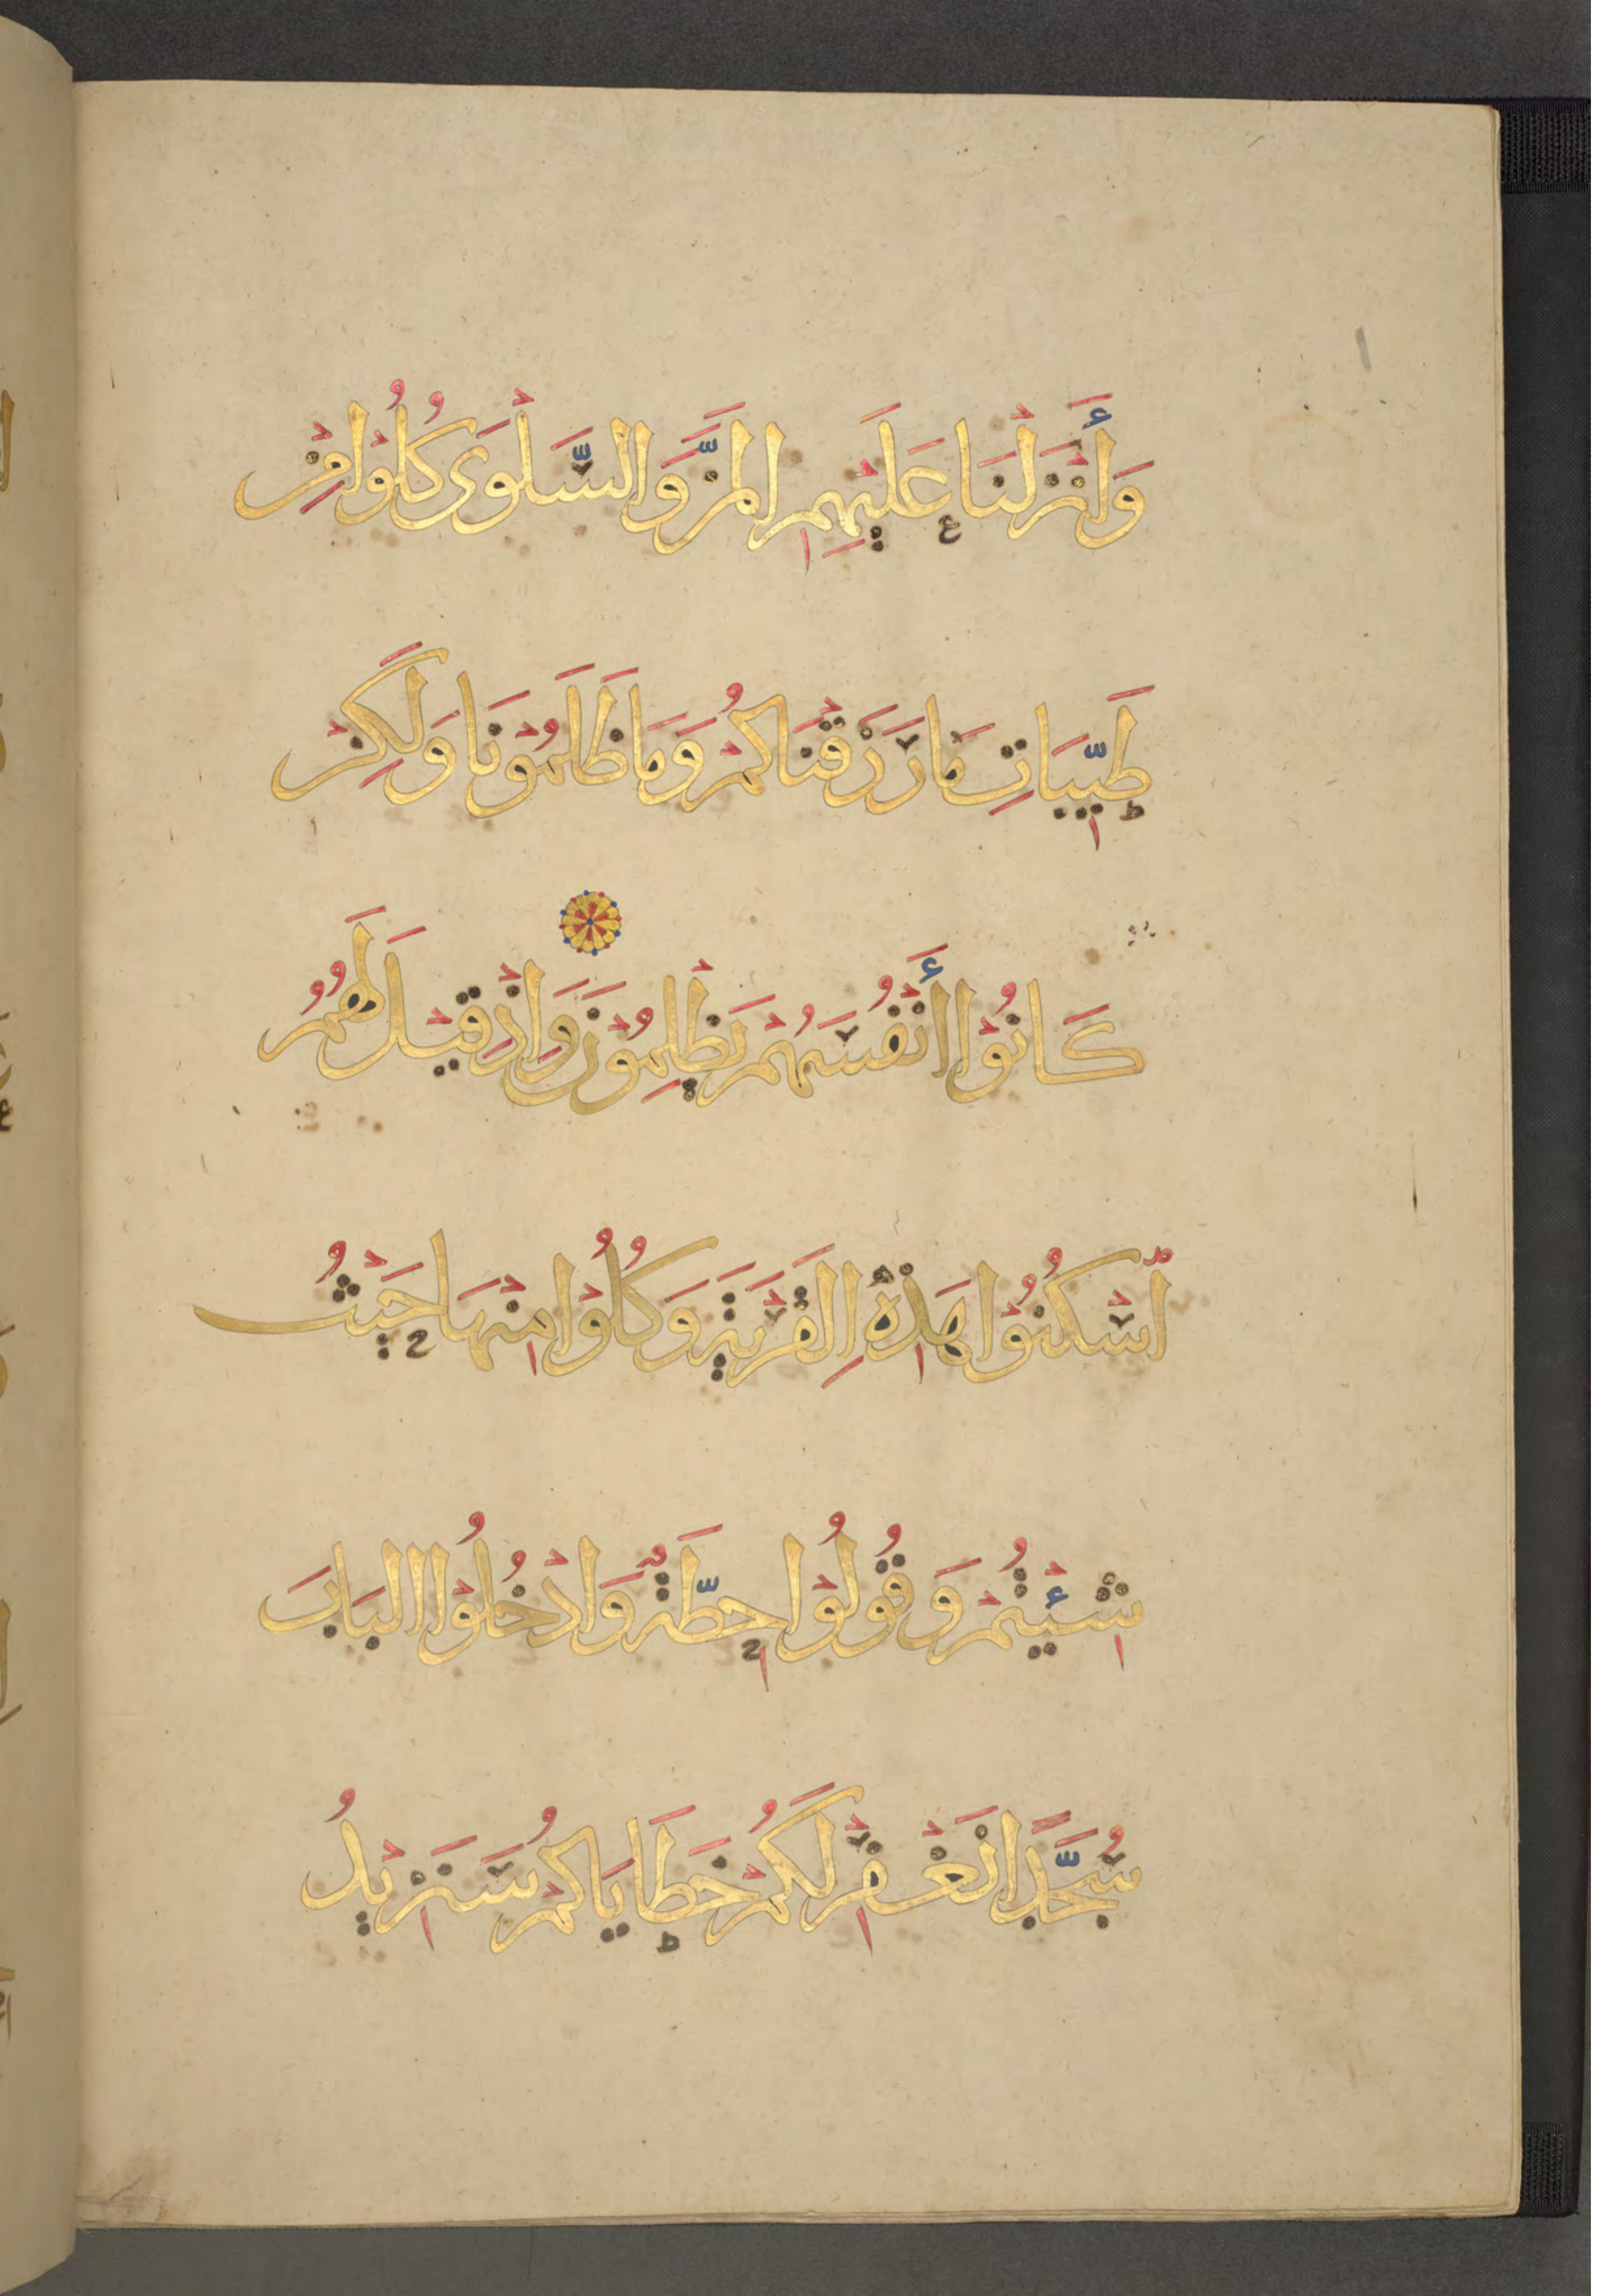 وَأَنْزَلْنَا عَلَيْهِمِ الْمَنَّ وَالسَّلْوَى كُلُوْا مِنْ
طَيِّبَاتِ مَا رَزَقْنَاكُمْ وَمَا ظَلَمُوْنَا وَلَكِنْ
كَانُوْا أَنْفُسَهُمْ يَظْلِمُوْنَ وَاِذْ قِيْلَ لَهُمُ
اسْكُنُوْا هَذِهِ الْقَرْيَةَ وَكُلُوْا مِنْهَا حَيْثُ
شِئْتُمْ وَقُولُوْا حِطَّةٌ وَادْخُلُوْا الْبَابَ
سُجَّدًا نَغْفِرْ لَكُمْ خَطَايَاكُمْ سَنَزِيْدُ